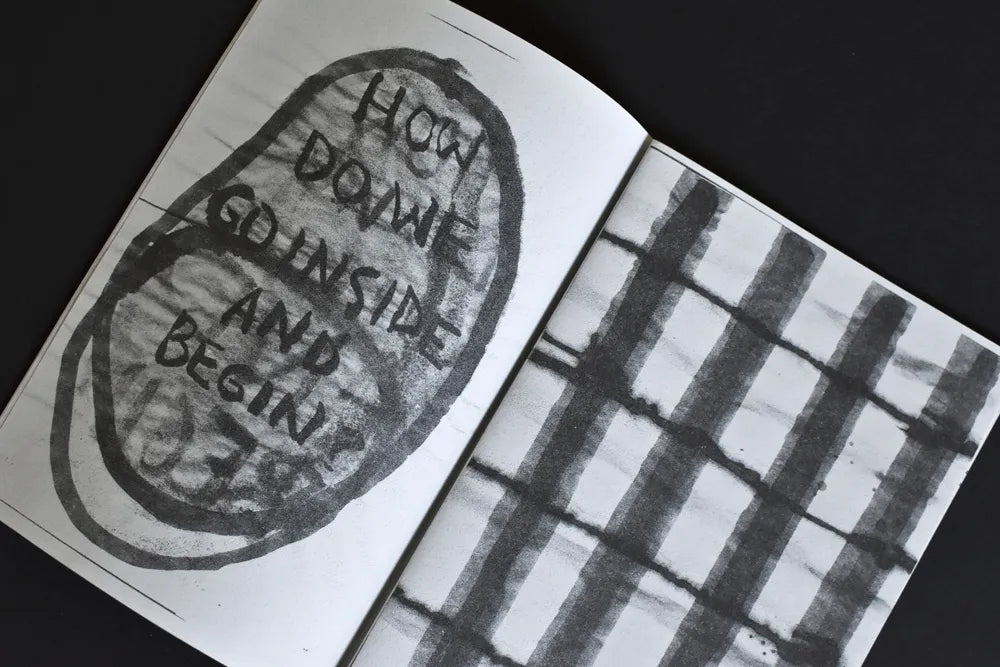 HOW
DO WE
GO INSIDE
AND
BEGIN?